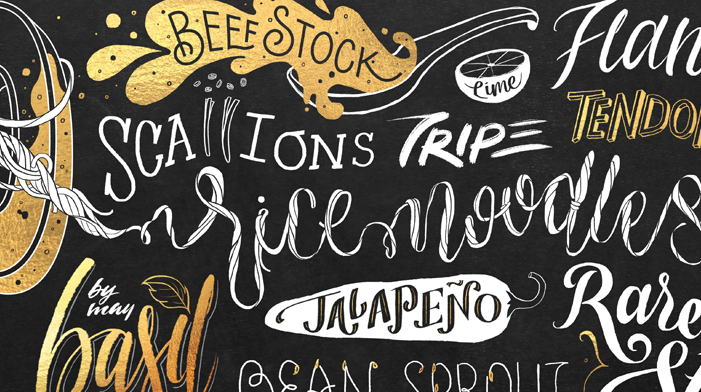 BEEF STOCK
Lime
Flan
TENDO
SCALLIONS
TRIPE
rice noodles
by
may
basil
JALAPEÑO
Rare
BEAN SPROUT